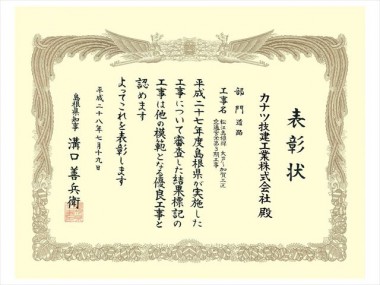 表彰状
カナツ技建工業株式会社 殿
部門 道路
工事名
平成二十七年度島根県が実施した
工事について審査した結果標記の
工事は他の模範となる優良工事と
認めます
よってこれを表彰します
平成二十八年七月十九日
島根県知事 溝口善兵衛